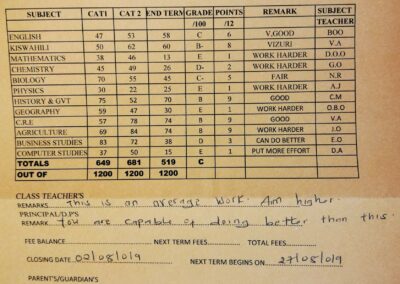 SUBJECT CAT1 CAT 2 END TERM GRADE POINTS REMARK SUBJECT
/100 /12 TEACHER
ENGLISH 47 53 58 C 6 V.GOOD BOO
KISWAHILI 50 62 60 B- 8 VIZURI V.A
MATHEMATICS 38 46 13 E 1 WORK HARDER D.O.O
CHEMISTRY 45 49 26 D- 2 WORK HARDER G.O
BIOLOGY 70 55 45 C- 5 FAIR N.R
PHYSICS 30 22 25 E 1 WORK HARDER A.J
HISTORY & GVT 75 52 70 B 9 GOOD C.M
GEOGRAPHY 59 47 30 E 1 WORK HARDER O.B.O
C.R.E 57 78 74 B 9 GOOD V.A
AGRICULTURE 69 84 74 B 9 WORK HARDER J.O
BUSINESS STUDIES 83 72 38 D 3 CAN DO BETTER E.O
COMPUTER STUDIES 37 50 15 E 1 PUT MORE EFFORT D.A
TOTALS 649 681 519 C
OUT OF 1200 1200 1200
CLASS TEACHER'S
REMARKS This is an average work. Aim higher.
PRINCIPAL/D.P'S
REMARK You are capable of doing better than this.
FEE BALANCE NEXT TERM FEES TOTAL FEES
CLOSING DATE 02/08/019 NEXT TERM BEGINS ON 27/08/019
PARENT'S/GUARDIAN'S